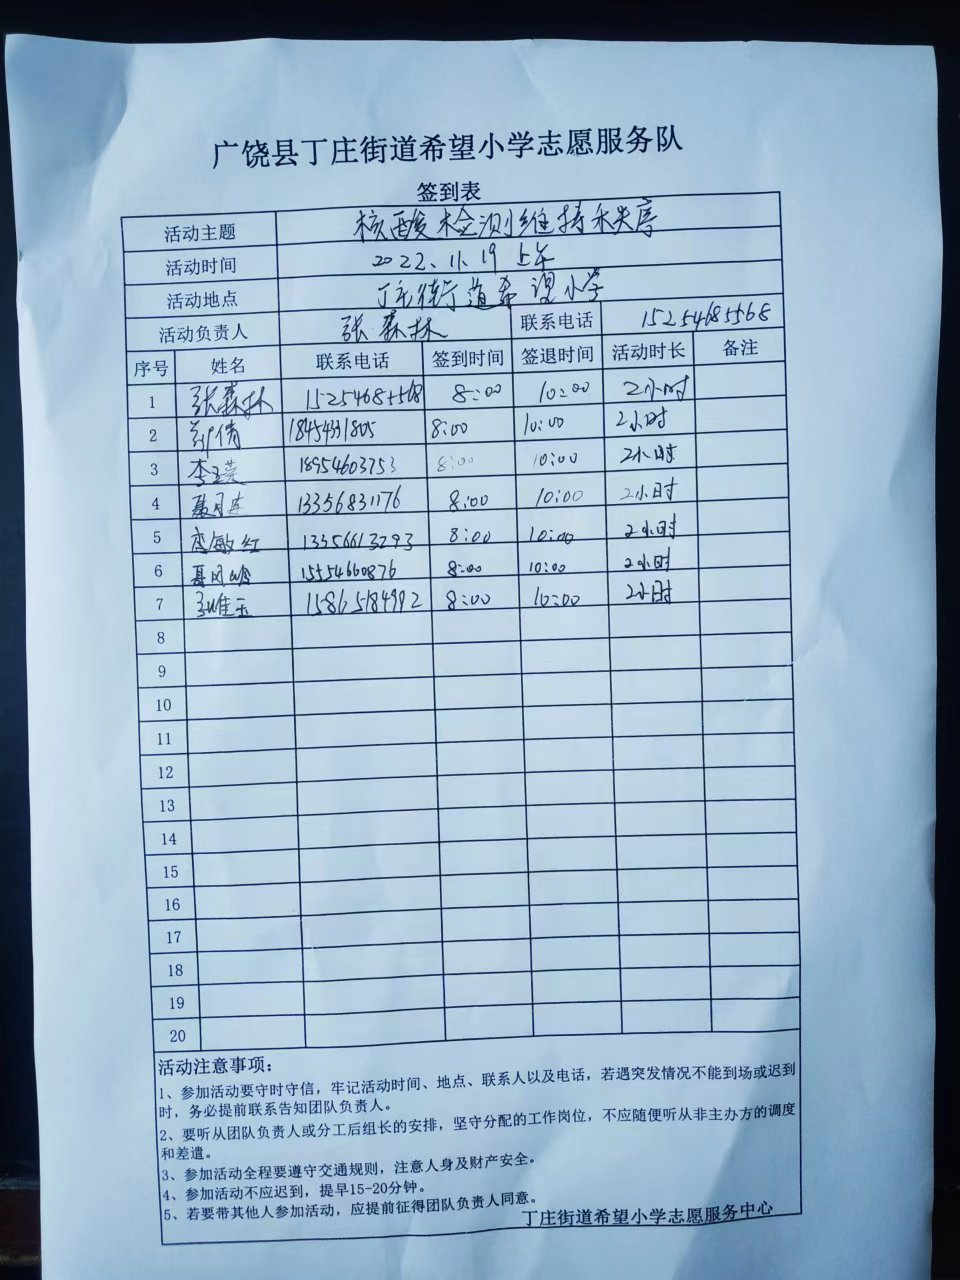 广饶县丁庄街道希望小学志愿服务队
签到表
活动主题 核酸检测维持秩序
活动时间 2022、11、19 上午
活动地点 丁庄街道希望小学
活动负责人 张森林 联系电话 15254685568
序号 姓名 联系电话 签到时间 签退时间 活动时长 备注
1 张森林 15254685568 8:00 10:00 2小时
2 郭倩 18454331805 8:00 10:00 2小时
3 李玉莲 18954603753 8:00 10:00 2小时
4 聂 13356831176 8:00 10:00 2小时
5 李敏红 13356613293 8:00 10:00 2小时
6 15554660876 8:00 10:00 2小时
7 15865184992 8:00 10:00 2小时
8
9
10
11
12
13
14
15
16
17
18
19
20
活动注意事项:
1、参加活动要守时守信，牢记活动时间、地点、联系人以及电话，若遇突发情况不能到场或迟到
时，务必提前联系告知团队负责人。
2、要听从团队负责人或分工后组长的安排，坚守分配的工作岗位，不应随便听从非主办方的调度
和差遣。
3、参加活动全程要遵守交通规则，注意人身及财产安全。
4、参加活动不应迟到，提早15-20分钟。
5、若要带其他人参加活动，应提前征得团队负责人同意。
丁庄街道希望小学志愿服务中心